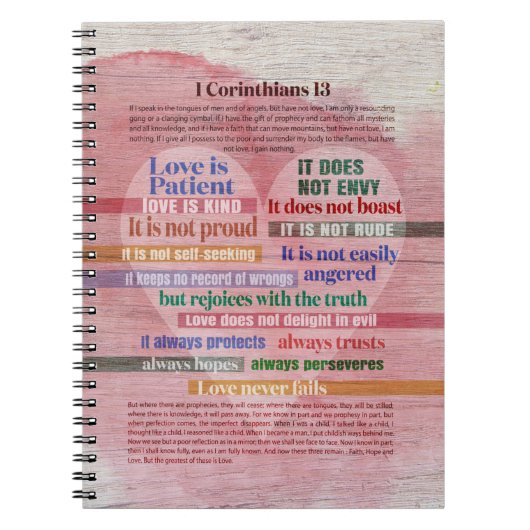 1 Corinthians 13
If I speak in the tongues of men and of angels, but have not love, I am only a resounding
gong or a clanging cymbal. If I have the gift of prophecy and can fathom all mysteries
and all knowledge, and if i have a faith that can move mountains, but have not love, I am
nothing. If I give all I possess to the poor and surrender my body to the flames, but have
not love, I gain nothing.
Love is
Patient
IT DOES
NOT ENVY
LOVE IS KIND
It does not boast
It is not proud
IT IS NOT RUDE
it is not self-seeking
It is not easily
angered
it keeps no record of wrongs
but rejoices with the truth
Love does not delight in evil
it always protects
always trusts
always hopes
always perseveres
Love never fails
But where there are prophecies, they will cease; where there are tongues, they will be stilled;
where there is knowledge, it will pass away. For we know in part and we prophecy in part, but
when perfection comes, the imperfect disappears. When I was a child, I talked like a child, I
thought like a child, I reasoned like a child. When I became a man, I put childish ways behind me.
Now we see but a poor reflection as in a mirror; then we shall see face to face. Now I know in part,
then I shall know fully, even as I am fully known. And now these three remain : Faith, Hope and
Love. But the greatest of these is Love.